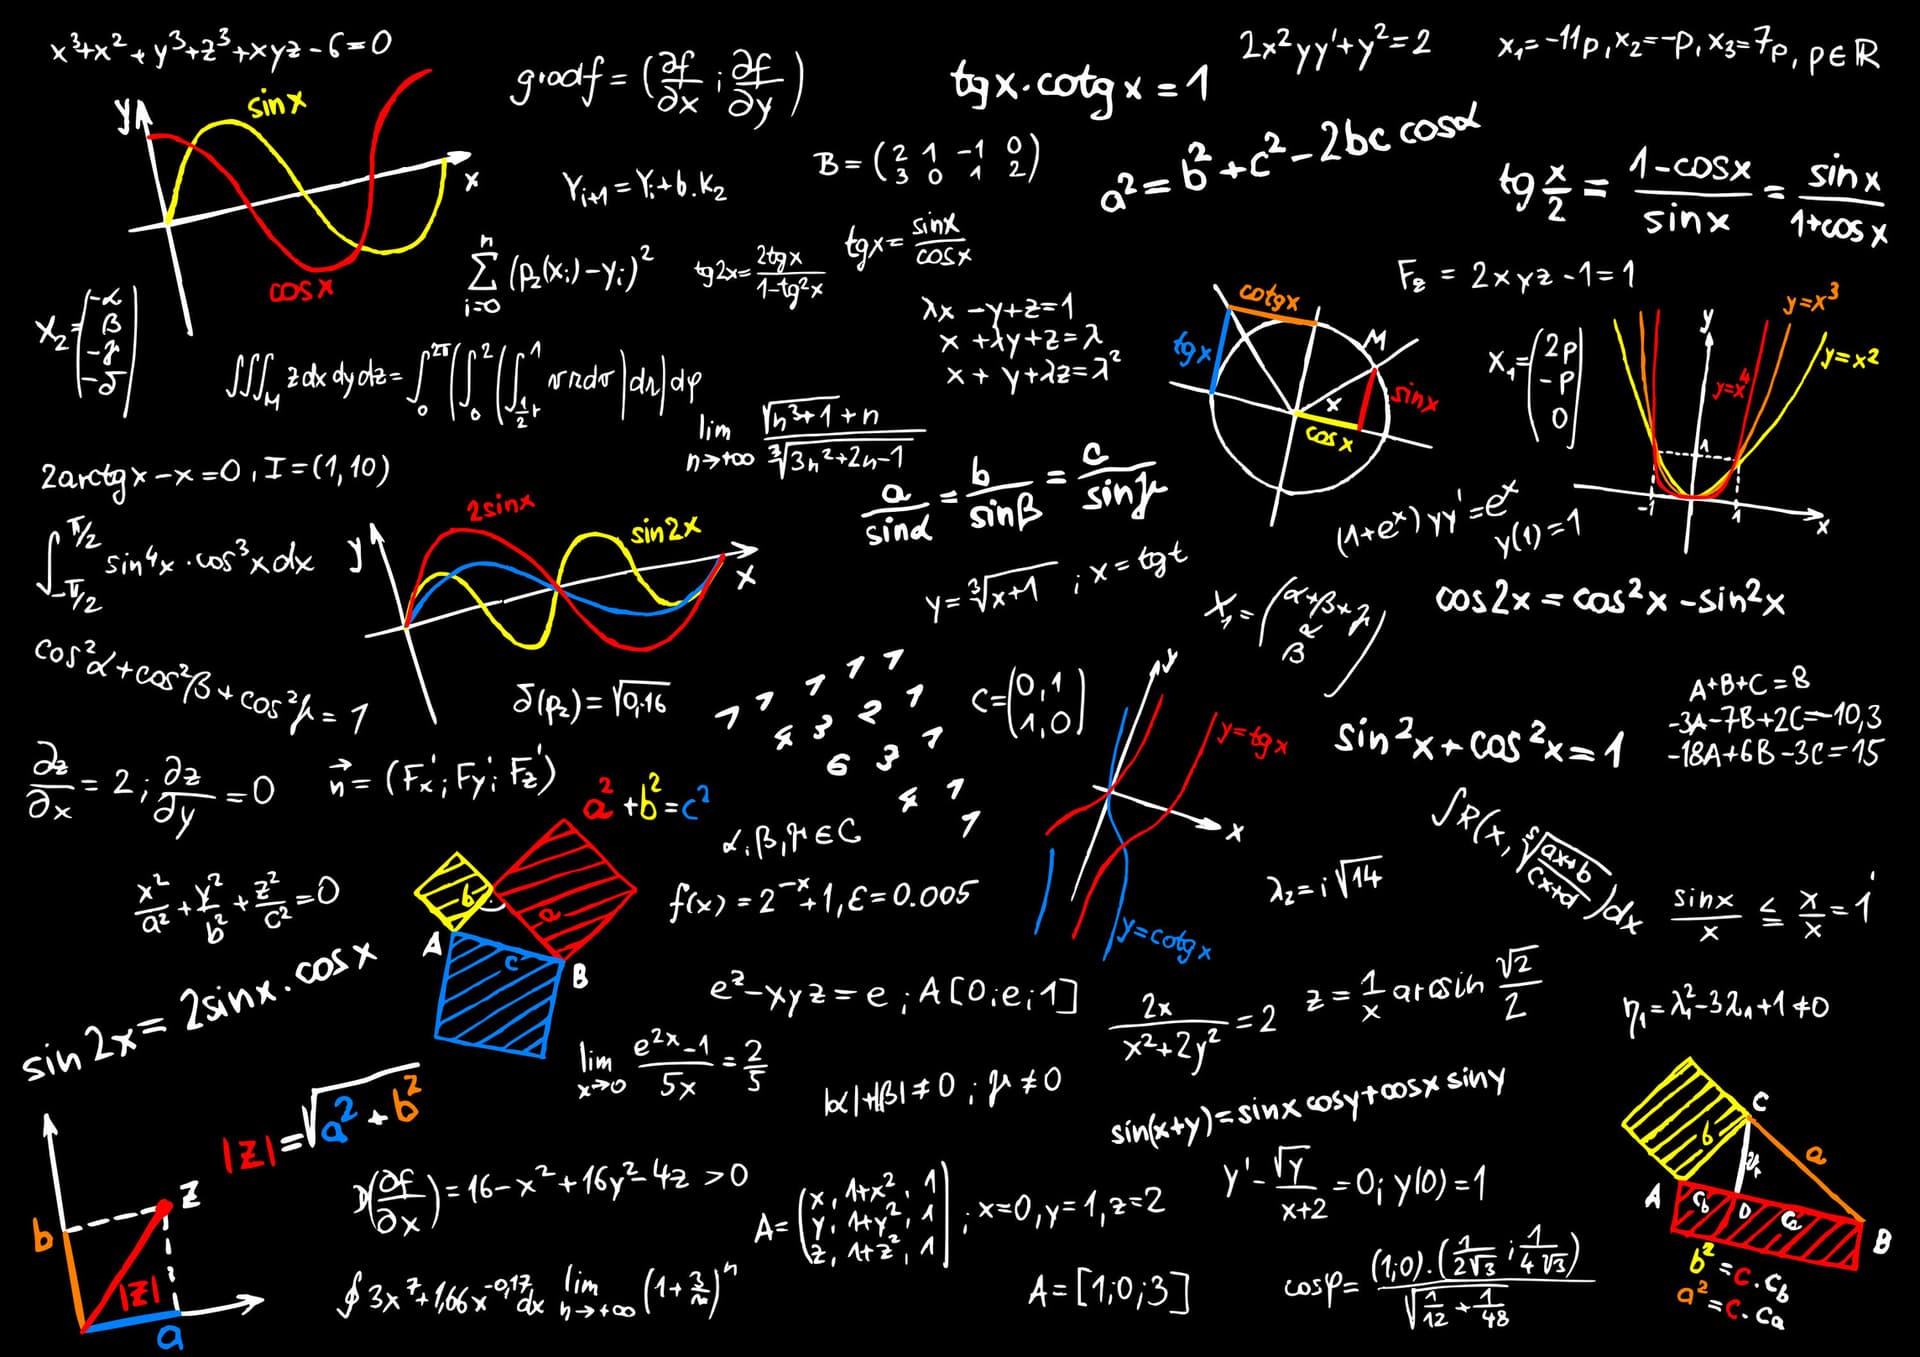 x³+x²+y³+z³+xyz-6=0
y
sin x
x
cos x
gradf = (∂f/∂x ; ∂f/∂y)
tg x . cotg x = 1
2x²yy'+y²=2
x₁=-11p, x₂=-p, x₃=7p, p∈ℝ
Yᵢ₊₁ = Yᵢ+b.K₂
B = (2 1 -1 0
3 0 1 2)
a² = b²+c²-2bc cosα
tg x/2 = 1-cosx/sinx = sinx/1+cosx
n
∑ (p₂(xᵢ)-yᵢ)²
i=0
tg2x = 2tgx/1-tg²x
tgx = sinx/cosx
F₂ = 2xyz-1=1
X₂ = (-α
β
-γ
-δ)
∭M z dx dy dz = ∫₀²π (∫₀² (∫½r¹
dr)dφ
λx-y+z=1
x+λy+z=λ
x+y+λz=λ²
cotg x
tg x
M
sin x
x
cos x
X₁ = (2p
-p
0)
y
y=x³
y=x⁴
y=x²
1
-1
1
x
lim n→+∞ √(n³+1)+n / ³√(3n²+2n-1)
2arctgx-x=0, I=(1,10)
a/sinα = b/sinβ = c/sinγ
(1+eˣ)yy'=eˣ
y(1)=1
∫-π/2 π/2 sin⁴x . cos³x dx
y
2sinx
sin2x
x
y = ³√(x+1) ; x = tgt
X₁ = (α+β+γ
α
β)
cos2x = cos²x-sin²x
cos²α+cos²β+cos²γ=1
δ(p₂) = √0,16
1 1 1 1 1
4 3 2 1
6 3 1
4 1
1
C = (0,1
1,0)
y
y=tgx
x
y=cotgx
A+B+C=8
-3A-7B+2C=-10,3
-18A+6B-3C=15
sin²x+cos²x=1
∂z/∂x = 2 ; ∂z/∂y = 0
n⃗ = (Fx' ; Fy' ; Fz')
a²+b²=c²
b
a
c
A
B
α,β,γ∈C
∫R(x, ⁵√(ax+b/cx+d))dx
x²/a²+y²/b²+z²/c²=0
f(x) = 2⁻ˣ+1, ε=0.005
λ₂ = i√14
sinx/x ≤ x/x = 1
sin2x = 2sinx . cosx
e^z-xyz = e ; A[0;e;1]
2x/x²+2y² = 2
z = 1/x arcsin √2/2
η₁ = λ₁²-3λ₁+1≠0
lim x→0 e²ˣ-1/5x = 2/5
|α|+|β|≠0 ; γ≠0
sin(x+y) = sinx cosy+cosx siny
|z| = √(a²+b²)
b
z
|z|
a
D(∂f/∂x) = 16-x²+16y²-4z > 0
A = (x, 1+x², 1
y, 1+y², 1
z, 1+z², 1) ; x=0, y=1, z=2
y'-√y/x+2 = 0; y(0)=1
∮3x⁷+1,66x^-0,17 dx
lim n→+∞
A = [1;0;3]
cosφ = (1;0).(1/2√3 ; 1/4√3) / √(1/12+1/48)
C
b
a
A
D
B
b² = c.cb
a² = c.ca